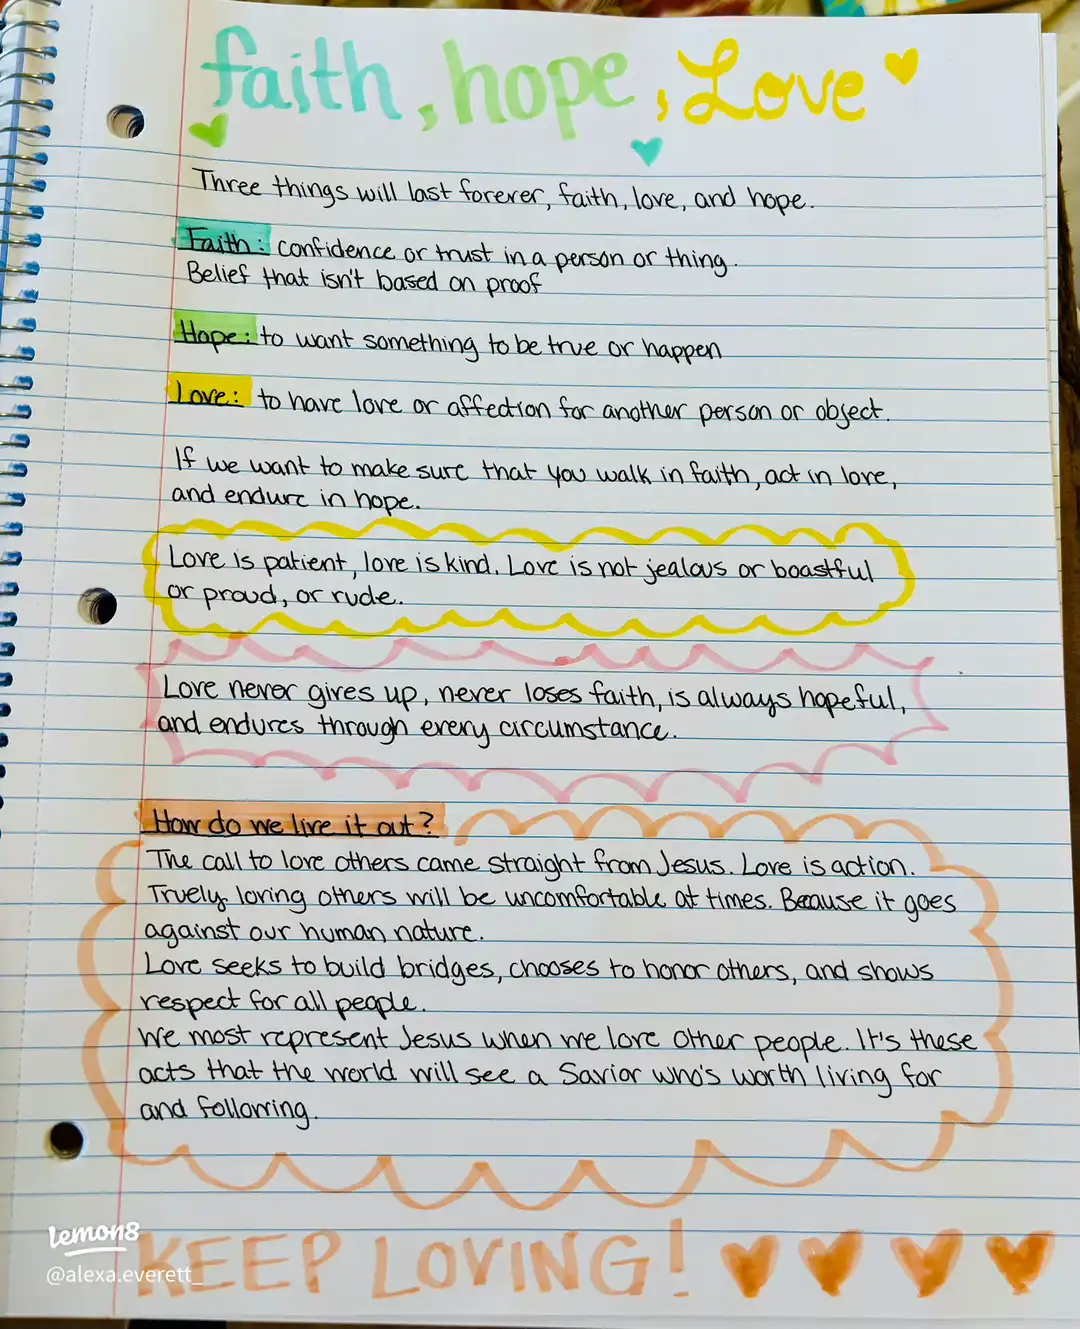 faith, hope, Love
Three things will last forever, faith, love, and hope.
Faith: confidence or trust in a person or thing.
Belief that isn't based on proof
Hope: to want something to be true or happen
Love: to have love or affection for another person or object.
If we want to make sure that you walk in faith, act in love,
and endure in hope.
Love is patient, love is kind. Love is not jealous or boastful
or proud, or rude.
Love never gives up, never loses faith, is always hopeful,
and endures through every circumstance.
How do we live it out?
The call to love others came straight from Jesus. Love is action.
Truely loving others will be uncomfortable at times. Because it goes
against our human nature.
Love seeks to build bridges, chooses to honor others, and shows
respect for all people.
We most represent Jesus when we love other people. It's these
acts that the world will see a Savior who's worth living for
and following.
KEEP LOVING!
lemon8
@alexa.everett_